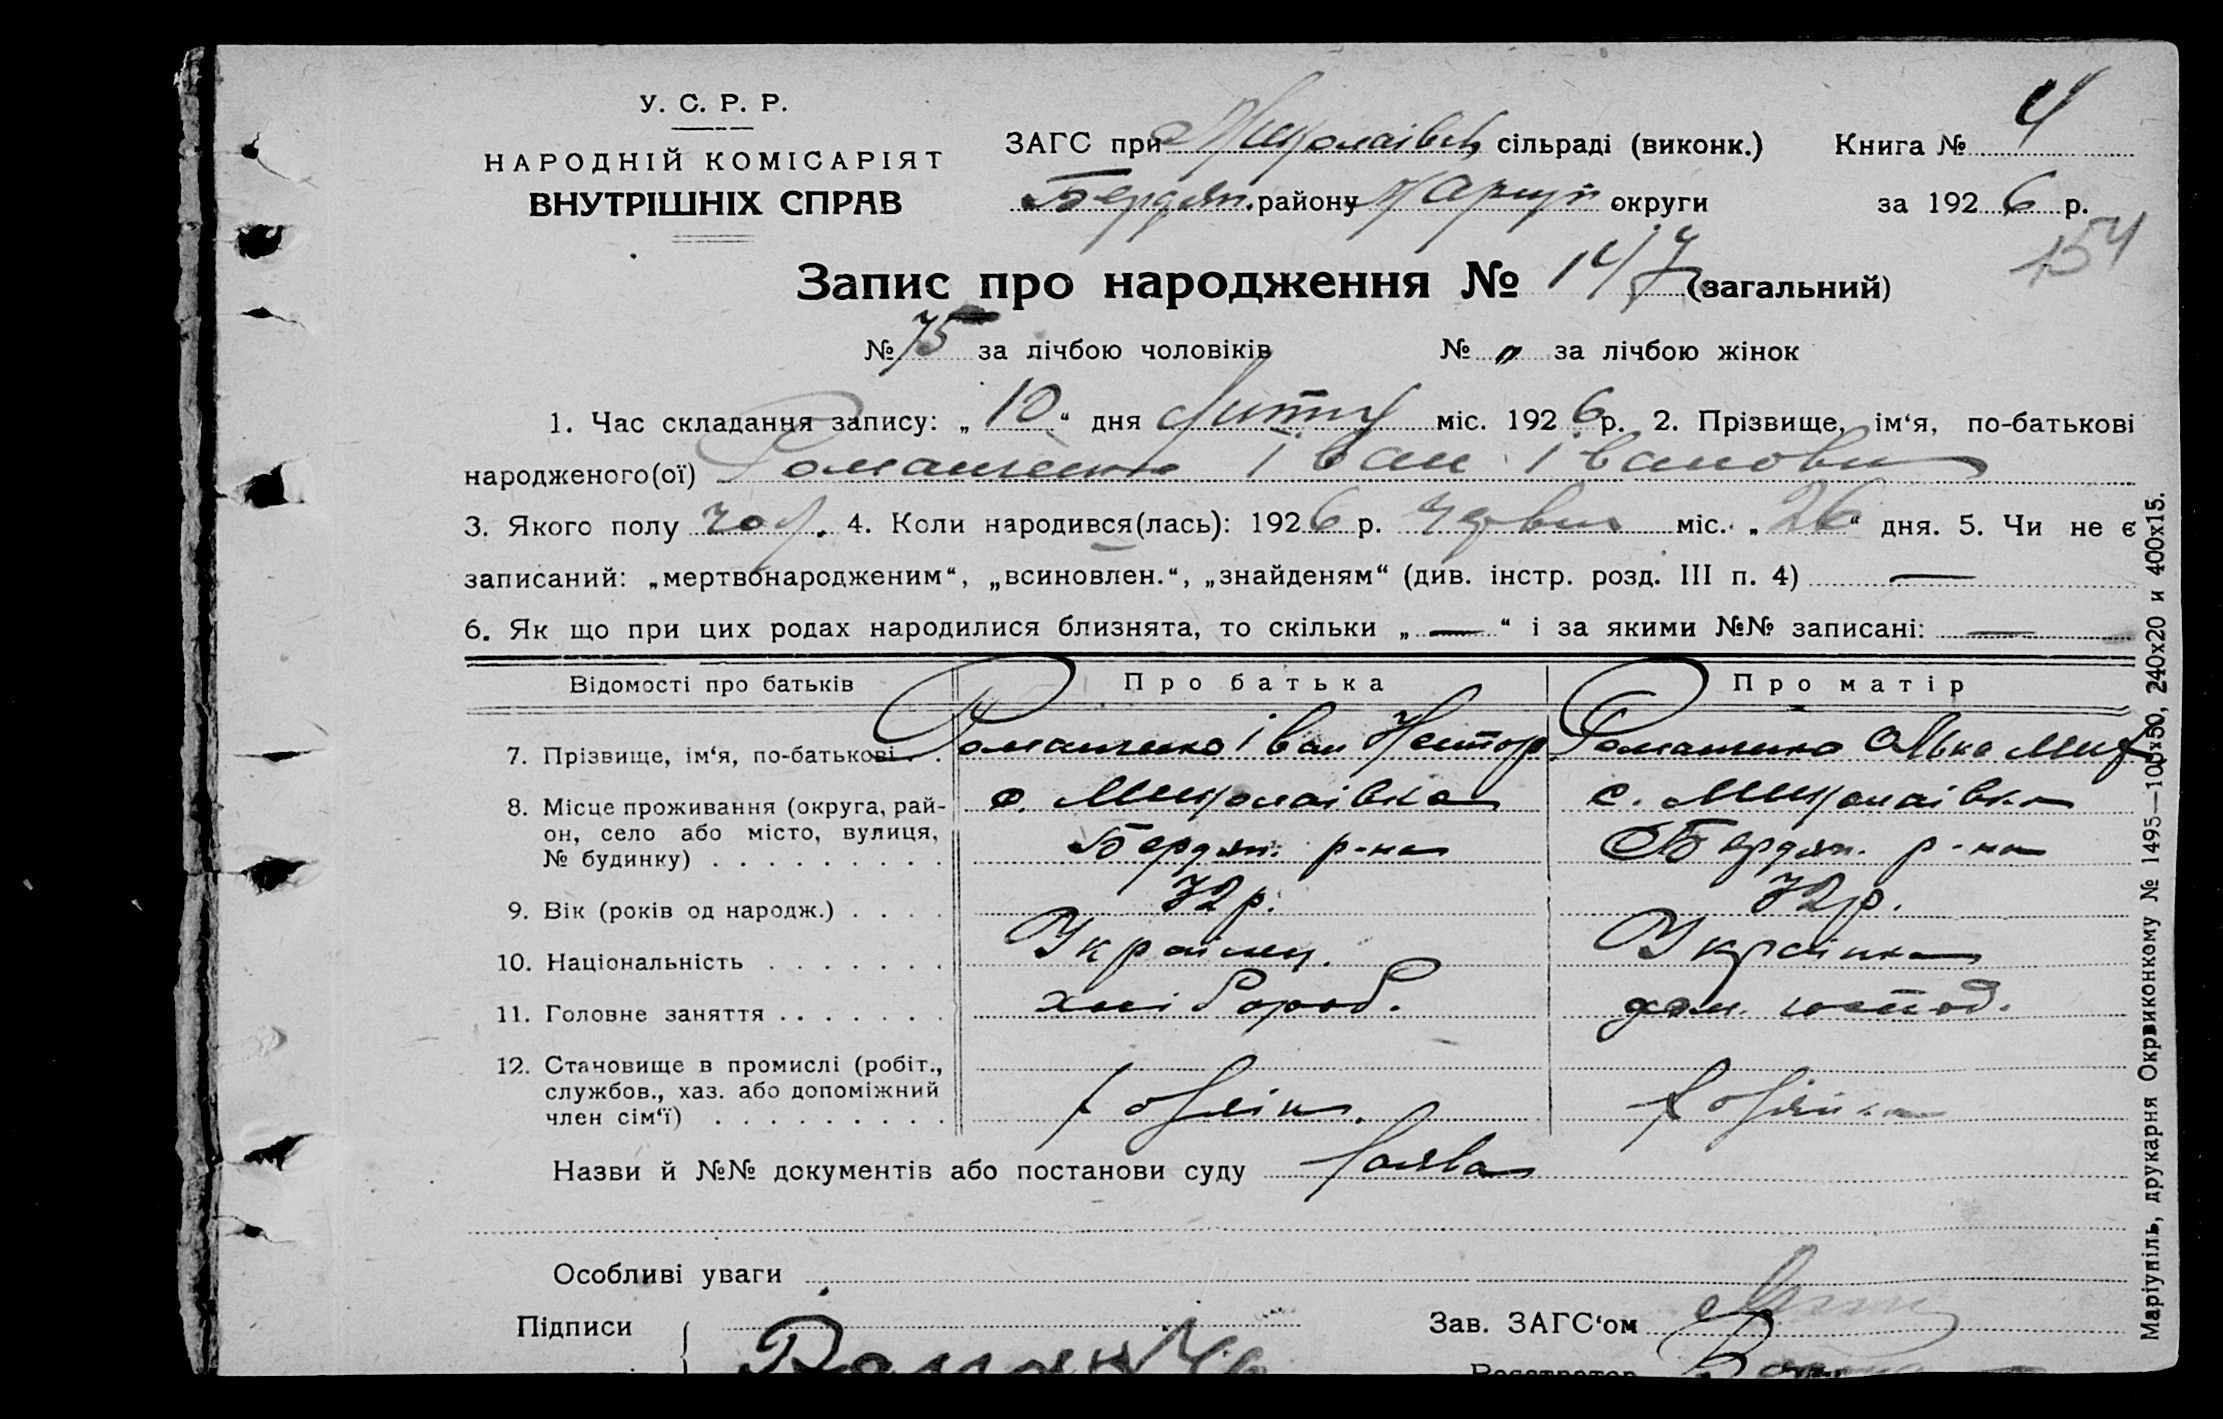 У. С. Р. Р.
НАРОДНІЙ КОМІСАРІЯТ
ВНУТРІШНІХ СПРАВ
ЗАГС при Миколаівск сільраді (виконк.) Книга № 4
Бердян. району Маріуп округи за 1926 р.
154
Запис про народження № 147 (загальний)
№ 75 за лічбою чоловіків № „ за лічбою жінок
1. Час складання запису: „ 10 “ дня міс. 1926 р. 2. Прізвище, ім‘я, по-батькові
народженого(ої) Романченко Іван Іванови
3. Якого полу чол. 4. Коли народився(лась): 1926 р. Червня міс. „ 26 “ дня. 5. Чи не є
записаний: „мертвонародженим“, „всиновлен.“, „знайденям“ (див. інстр. розд. III п. 4) —
6. Як що при цих родах народилися близнята, то скільки „ — “ і за якими №№ записані: —
Відомості про батьків Про батька Про матір
7. Прізвище, ім‘я, по-батькові . . Романченко Іван Нестор Романченко Ольга Мих
8. Місце проживання (округа, рай- с. Миколаівка с. Миколаівка
он, село або місто, вулиця,
№ будинку) . . . . . . . . . Бердян. р-на Бердян. р-на
9. Вік (років од народж.) . . . . 32 р. 32 р.
10. Національність . . . . . . . Украінец. Украінка
11. Головне заняття . . . . . . . хлібороб. дом. господ.
12. Становище в промислі (робіт.,
службов., хаз. або допоміжний
член сім‘ї) . . . . . . . . .
Назви й №№ документів або постанови суду Заява
Особливі уваги
Підписи Зав. ЗАГС‘ом
Реєстратор
Маріупіль, друкарня Окрвиконкому № 1495—100x50, 240x20 и 400x15.